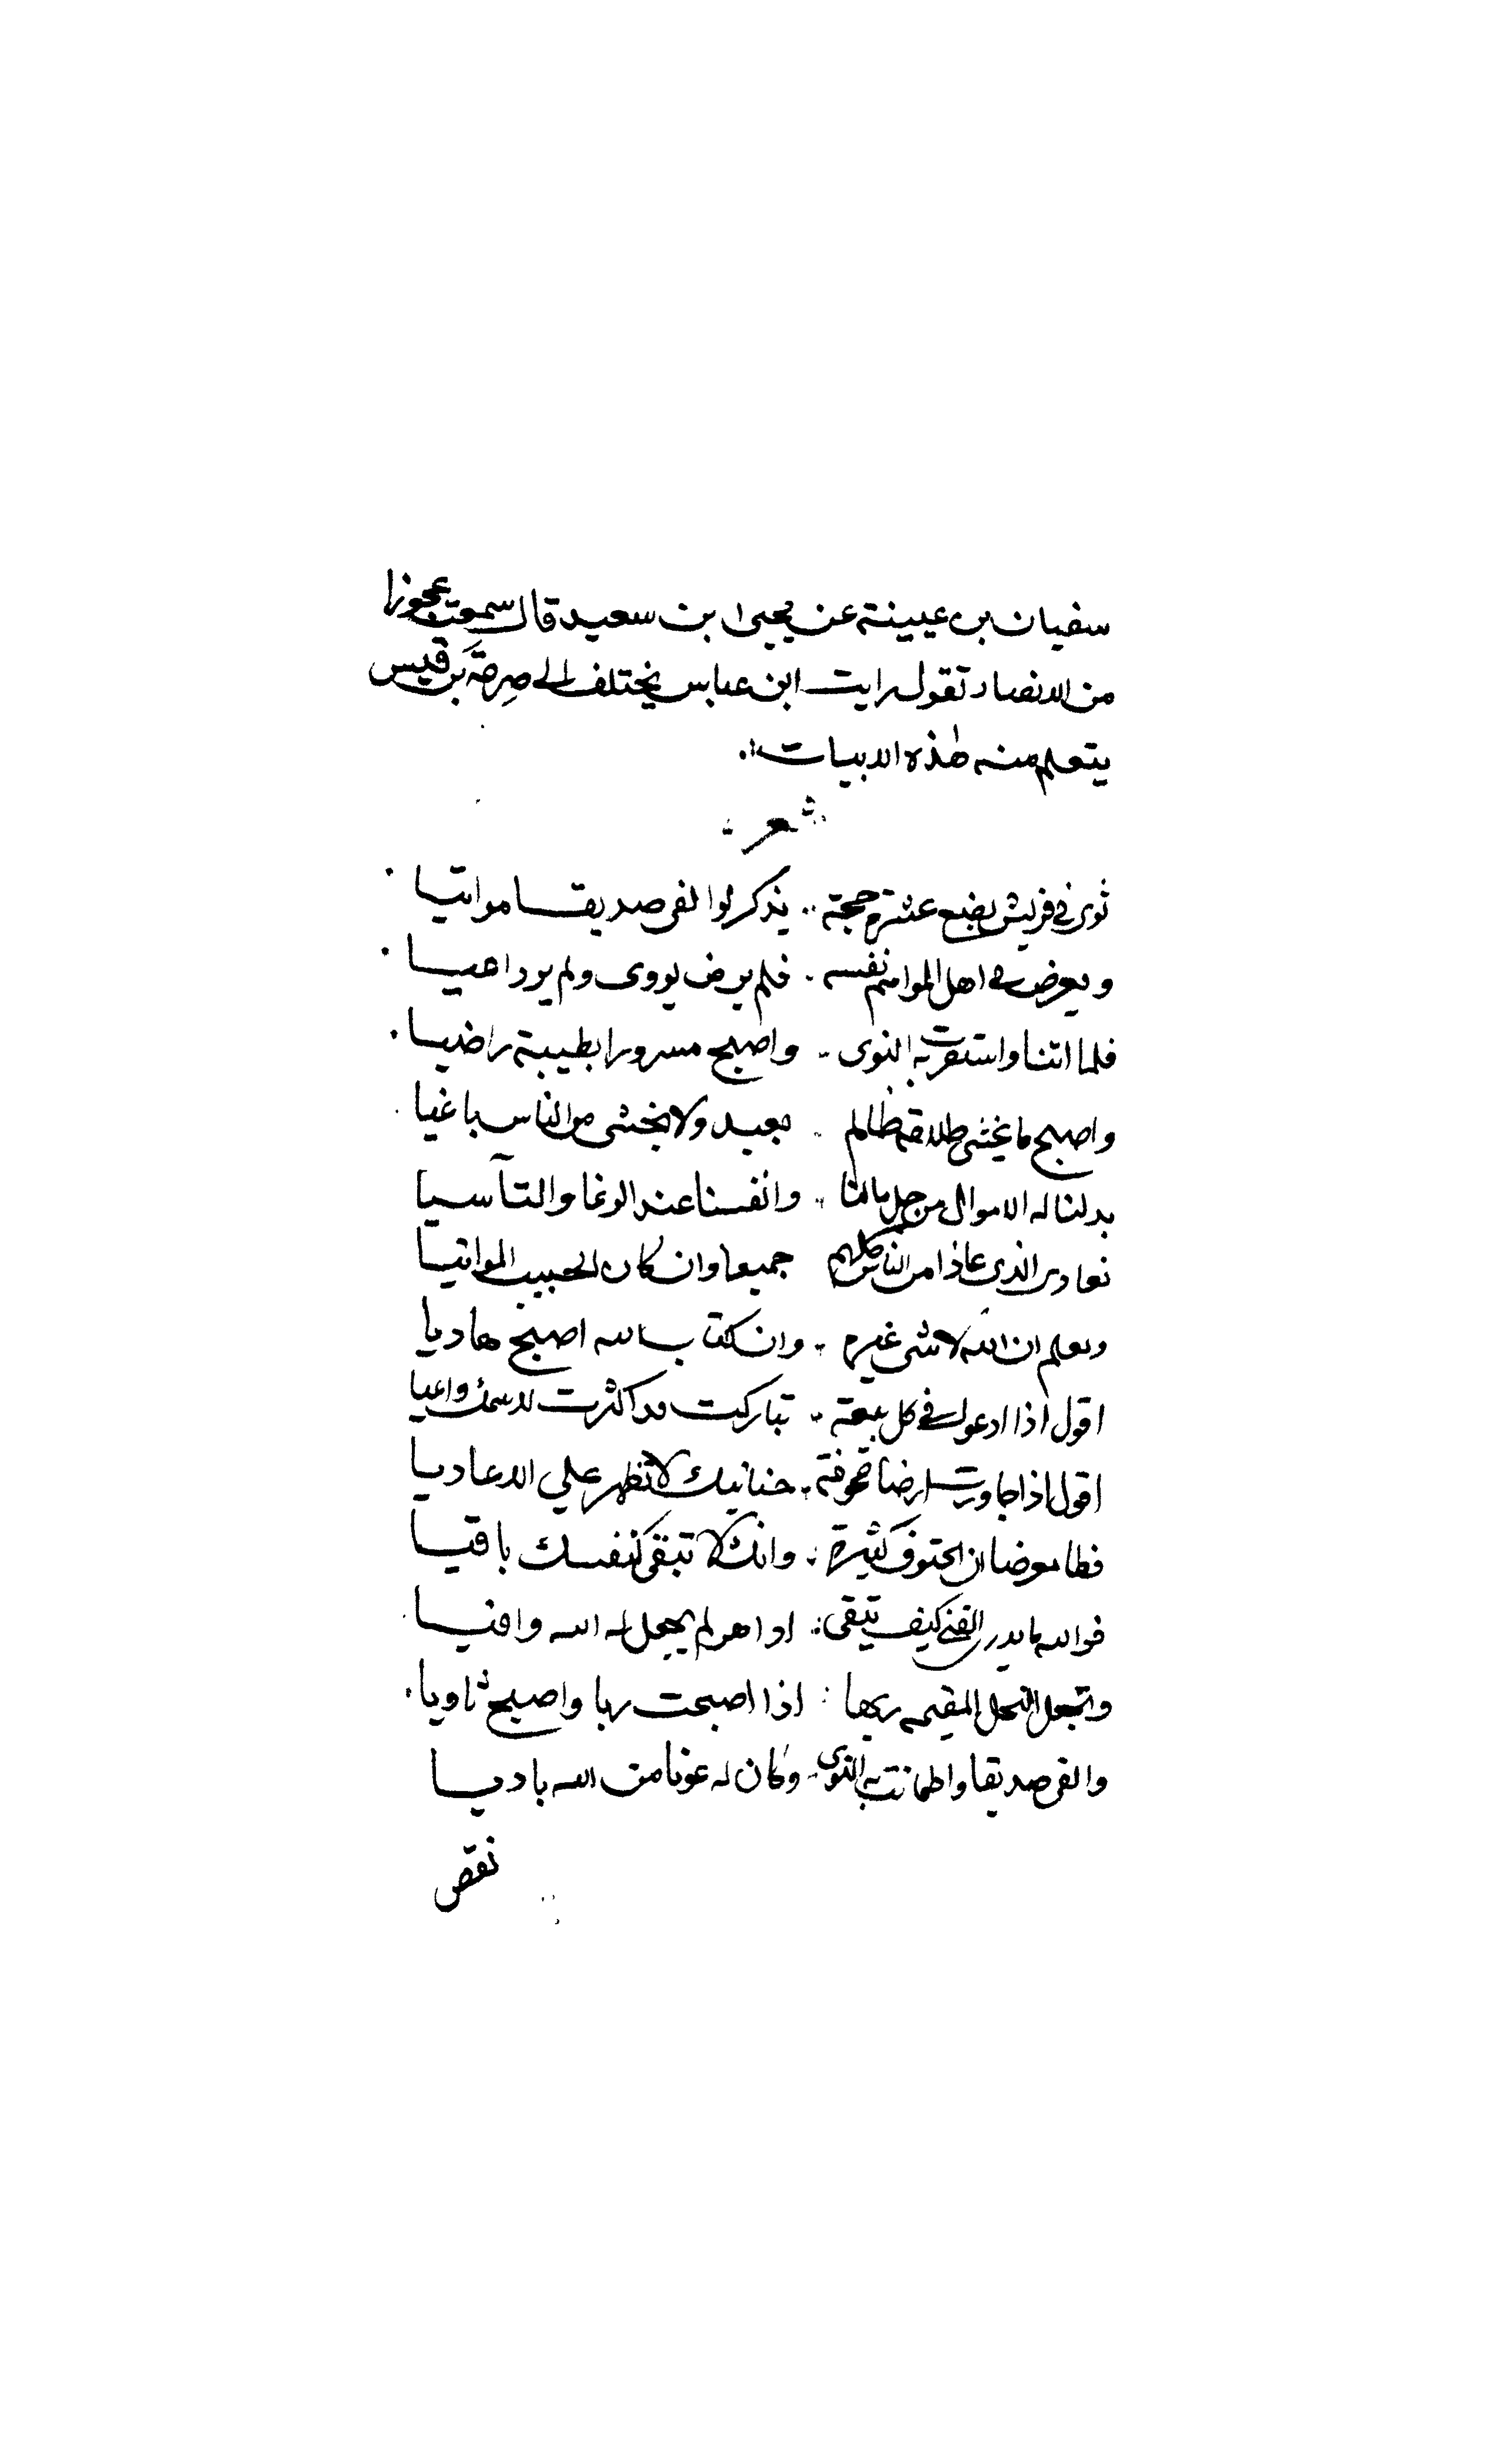 سفيان بن عيينة عن يحيى ابن سعيد قال سمعت عجوزا
من الانصار تقول رايت ابن عباس يختلف الى صرمة بن قيس
يتعلم منه هذه الابيات
شعر
ثوى في قريش بضع عشرة حجة يذكر لوا لقى صديقا مواتيا
ويعرض في اهل المواسم نفسه فلم ير من يووى ولم ير داعيا
فلما اتنا واستقرت به النوى واصبح مسرورا بطيبة راضيا
واصبح ما يخشى ظلامة ظالم بعيد ولا يخشى من الناس باغيا
بدلنا له الاموال من جل مالنا وانفسنا عند الوغا والتآسيا
نعادى الذى عاذا من الناس كلهم جميعا وان كان الحبيب المواتيا
ونعلم ان الله لا شى غيره وان كتاب الله اصبح هاديا
اقول اذا ادعوك في كل بيعة تباركت قد اكثرت لاسمك داعيا
اقول اذا جاورت ارضا مخوفة حنانيك لا تظهر علي الاعاديا
فطا معرضا ان الحتوف كثيرة وانك لا تبقى كنفسك باقيا
فوالله ما يدرى الفتى كيف يتقى اذا هو لم يجعل له الله واقيا
ولا تجعل النخل المقيمه ربها اذا اصبحت ريا واصبح ثاويا
والفى صديقا واطمانت به النوى وكان له عونا من الله باديا
نقص